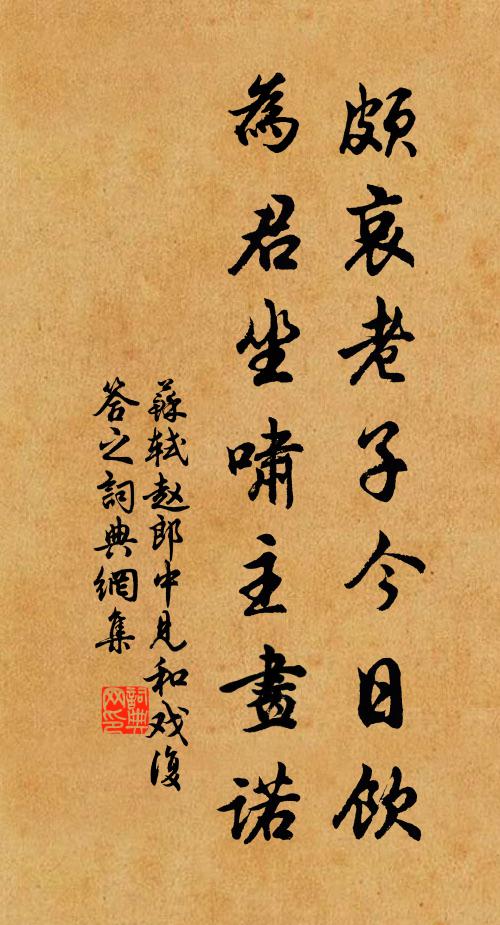 頗哀老子今日飲
為君坐嘯主畫諾
蘇軾赵郎中見和戏復
答之詞典網集
詞典网印